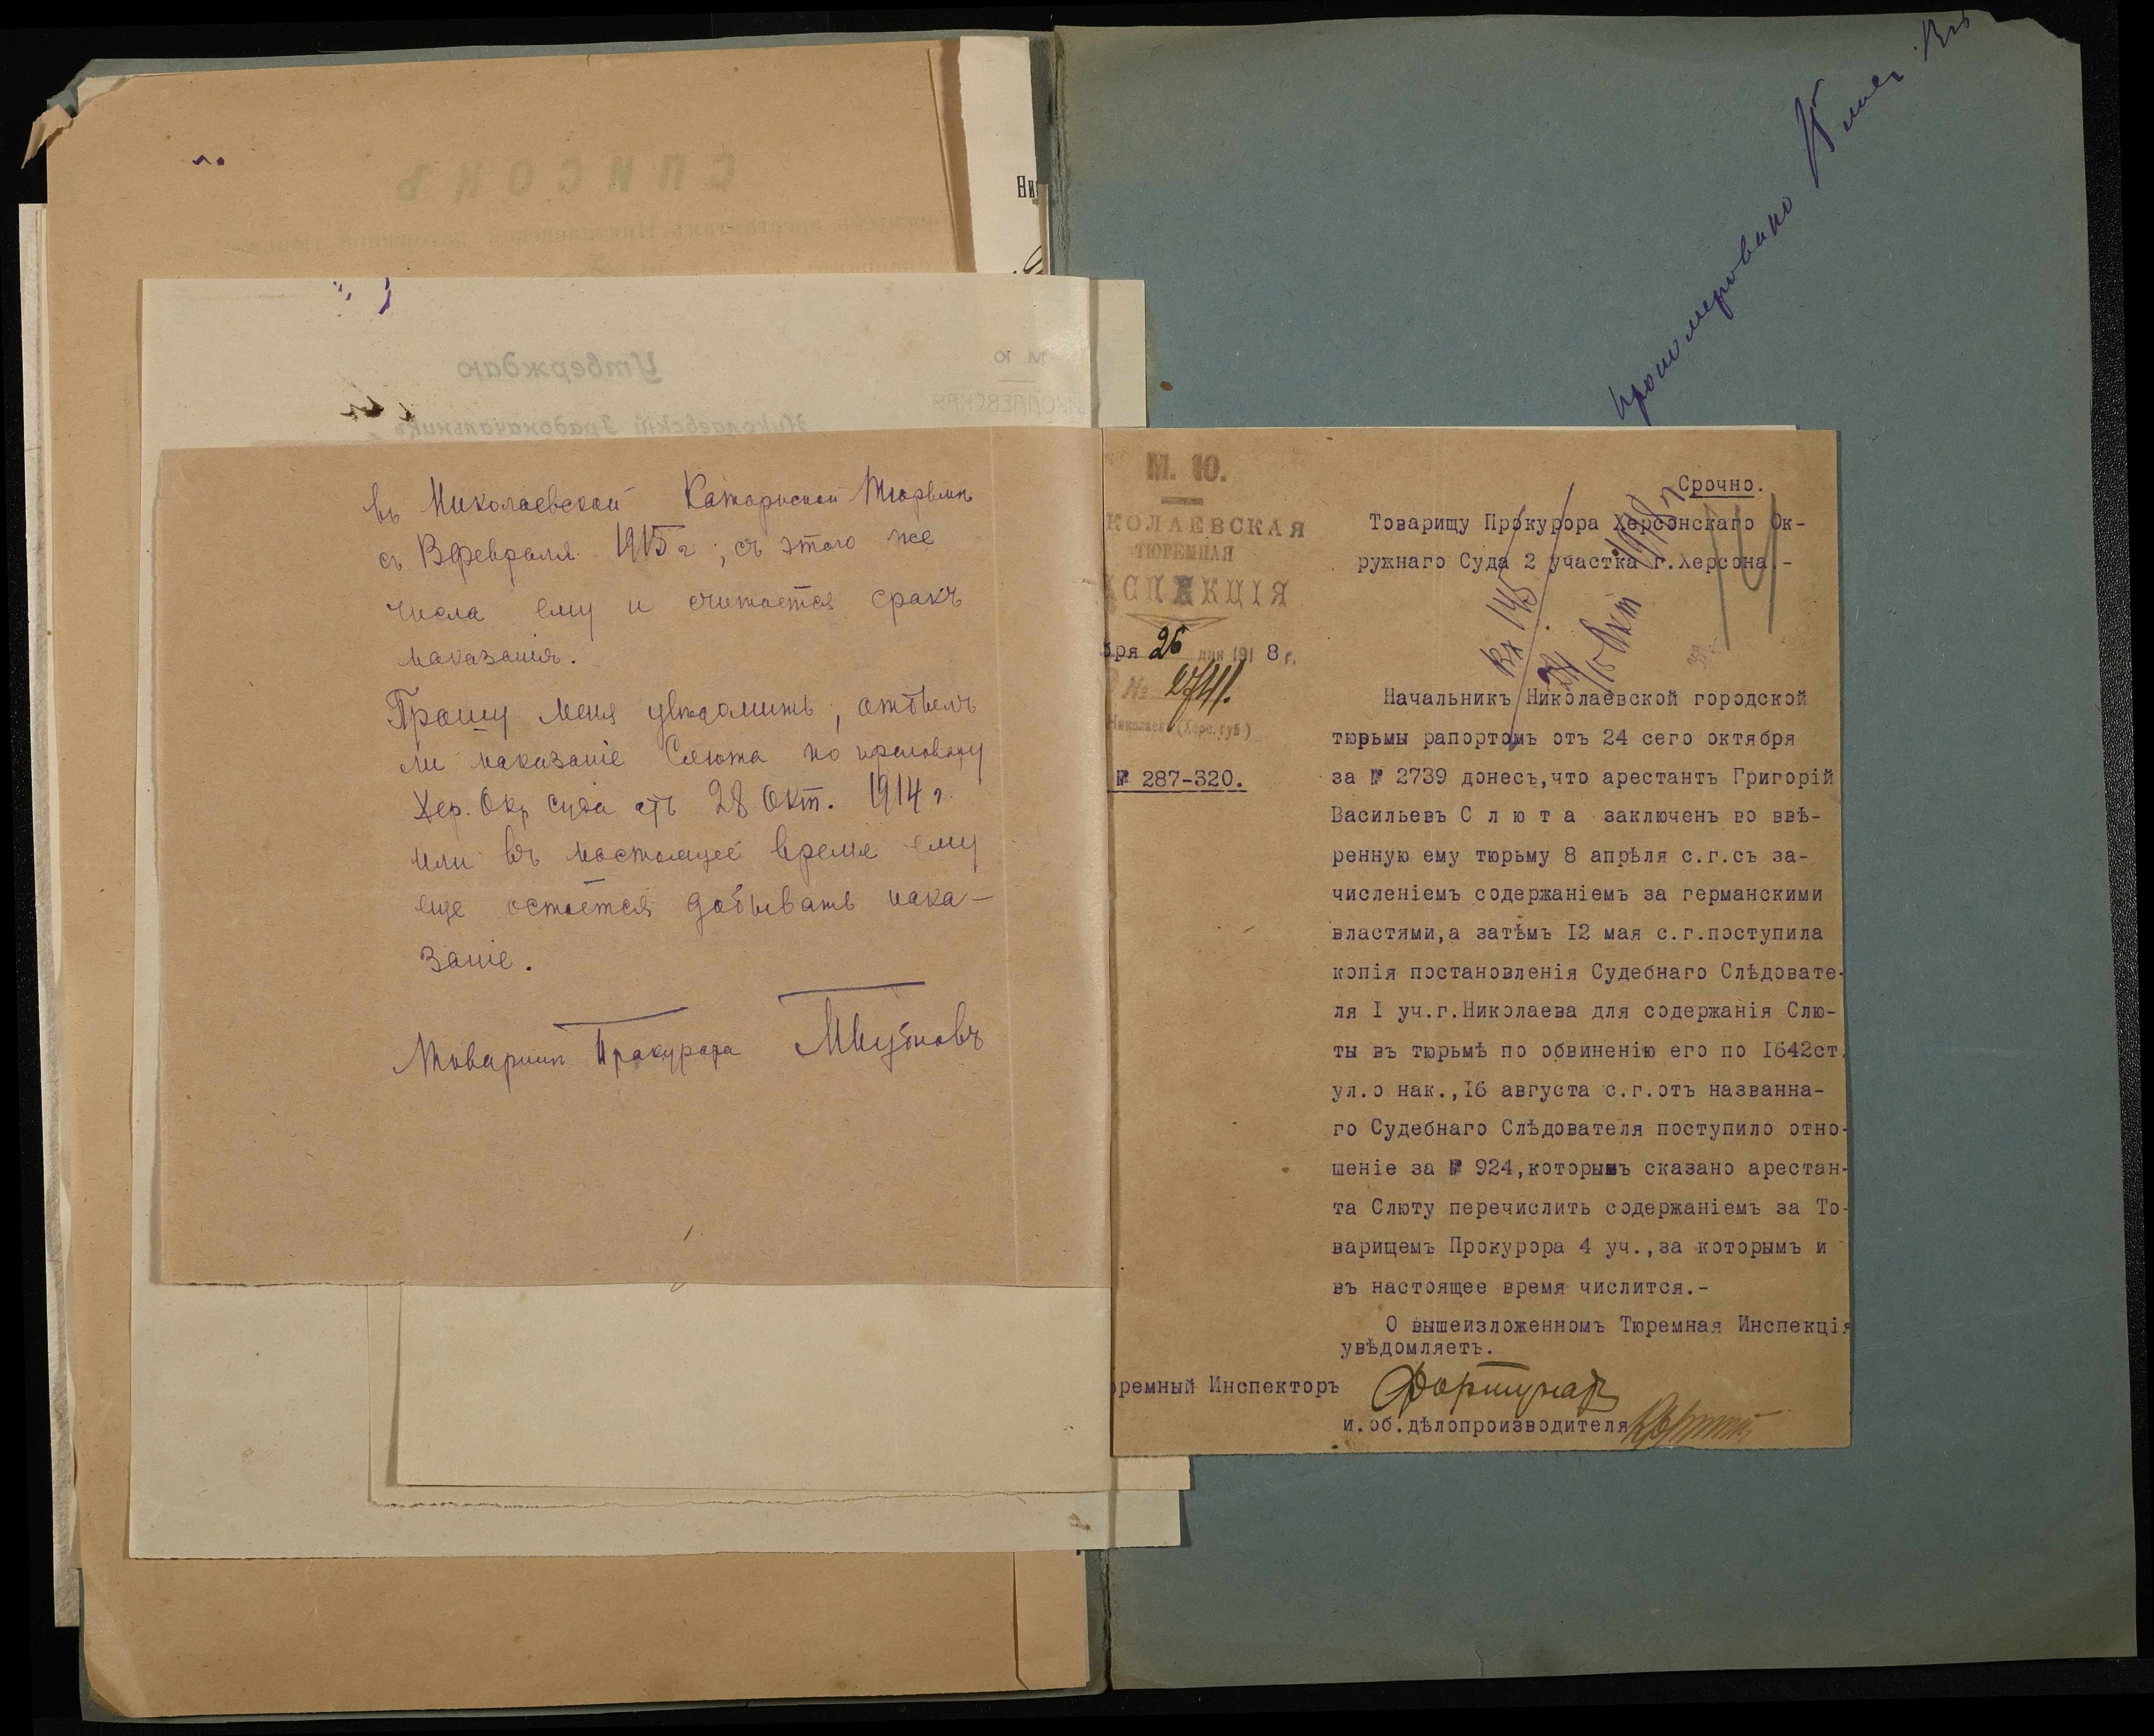 въ Николаевской Каторжной Тюрьмѣ
съ 13 февраля 1915 г; съ этого же
числа ему и считается срокъ
наказанія.
Прошу меня увѣдомить, отбылъ
ли наказаніе Слюта по приговору
Хер. Окр суда отъ 28 Окт. 1914 г.
или въ настоящее время ему
еще остается добывать нака-
заніе.
Товарищ Прокурора
СПИСОКЪ
Утверждаю
М Ю
КОЛАЕВСКАЯ
Николаевскій Градоначальникъ
Ви
пронумеровано
М. Ю.
КОЛАЕВСКАЯ
ТЮРЕМНАЯ
СПЕКЦІЯ
бря 26 дня 1918 г.
№ 2741.
Николаевъ (Херс. губ.)
№ 287-320.
Срочно.
Товарищу Прокурора Херсонскаго Ок-
ружнаго Суда 2 участка г.Херсона.-
Вх 145
1918 г
14
Начальникъ Николаевской городской
тюрьмы рапортомъ отъ 24 сего октября
за № 2739 донесъ,что арестантъ Григорій
Васильевъ С л ю т а заключенъ во ввѣ-
ренную ему тюрьму 8 апрѣля с.г.съ за-
численіемъ содержаніемъ за германскими
властями,а затѣмъ I2 мая с.г.поступила
копія постановленія Судебнаго Слѣдовате-
ля I уч.г.Николаева для содержанія Слю-
ты въ тюрьмѣ по обвиненію его по I642ст.
ул.о нак.,I6 августа с.г.отъ названна-
го Судебнаго Слѣдователя поступило отно-
шеніе за № 924,которымъ сказано арестан-
та Слюту перечислить содержаніемъ за То-
варищемъ Прокурора 4 уч.,за которымъ и
въ настоящее время числится.-
О вышеизложенномъ Тюремная Инспекція
увѣдомляетъ.
ремный Инспекторъ
и.об.дѣлопроизводителя